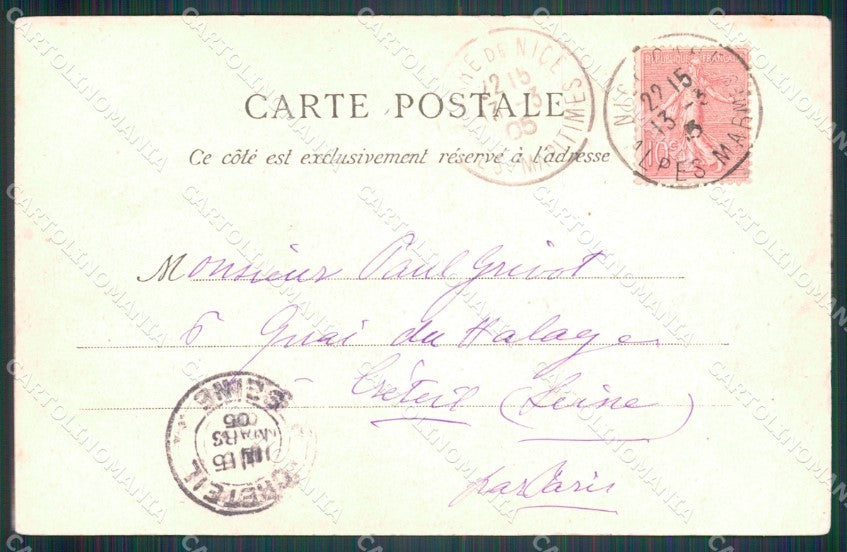 CARTE POSTALE
Ce côté est exclusivement réservé à l'adresse
RÉPUBLIQUE FRANÇAISE
10c
22 15
13 -3
ALPES MARMES
DE NICE
12 15
-3
05
MARITIMES
Monsieur Paul Grivot
6 Quai du Halage
Créteil (Seine)
par Paris
CRETEIL
MARS
05
SEINE
CARTOLINOMANIA